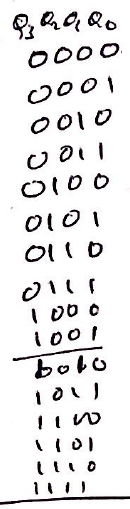 Q3 Q2 Q1 Q0
0000
0001
0010
0011
0100
0101
0110
0111
1000
1001
1010
1011
1100
1101
1110
1111